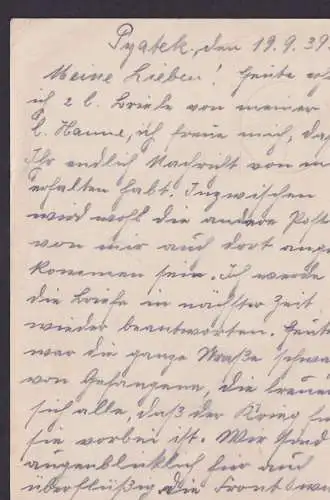 Pyatek, den 19.9.39
Meine Lieben! Heute
ich 2 l. Briefe von meiner
l. Hanne, ich freue mich, das
Ihr endlich Nachricht von
erhalten habt. Inzwischen
wird wohl die andere Post
von mir auch dort ange
kommen sein. Ich werde
die Briefe in nächster Zeit
wieder beantworten. Heute
war die ganze Straße schwa
von Gefangene, die freuen
sich alle, daß der Krieg für
sie vorbei ist. Wir sind
augenblicklich hier auch
überflüßig, die Front